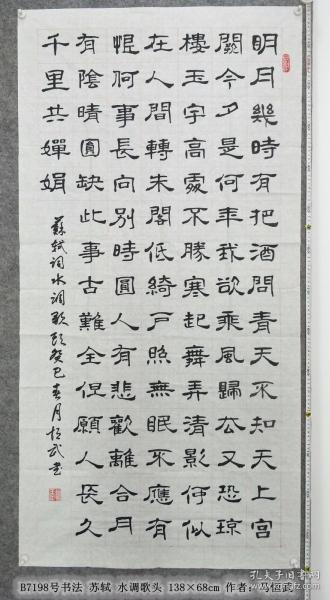 明月幾時有把酒問青天不知天上宮
闕今夕是何年我欲乘風歸去又恐琼
樓玉宇高處不勝寒起舞弄清影何似
在人間轉朱閣低綺戶照無眠不應有
恨何事長向別時圓人有悲歡離合月
有陰晴圓缺此事古難全但願人長久
千里共嬋娟
蘇軾词水调歌头癸巳春月恒武书
B7198号书法 苏轼 水调歌头 138×68cm 作者：马恒武
孔夫子旧书网